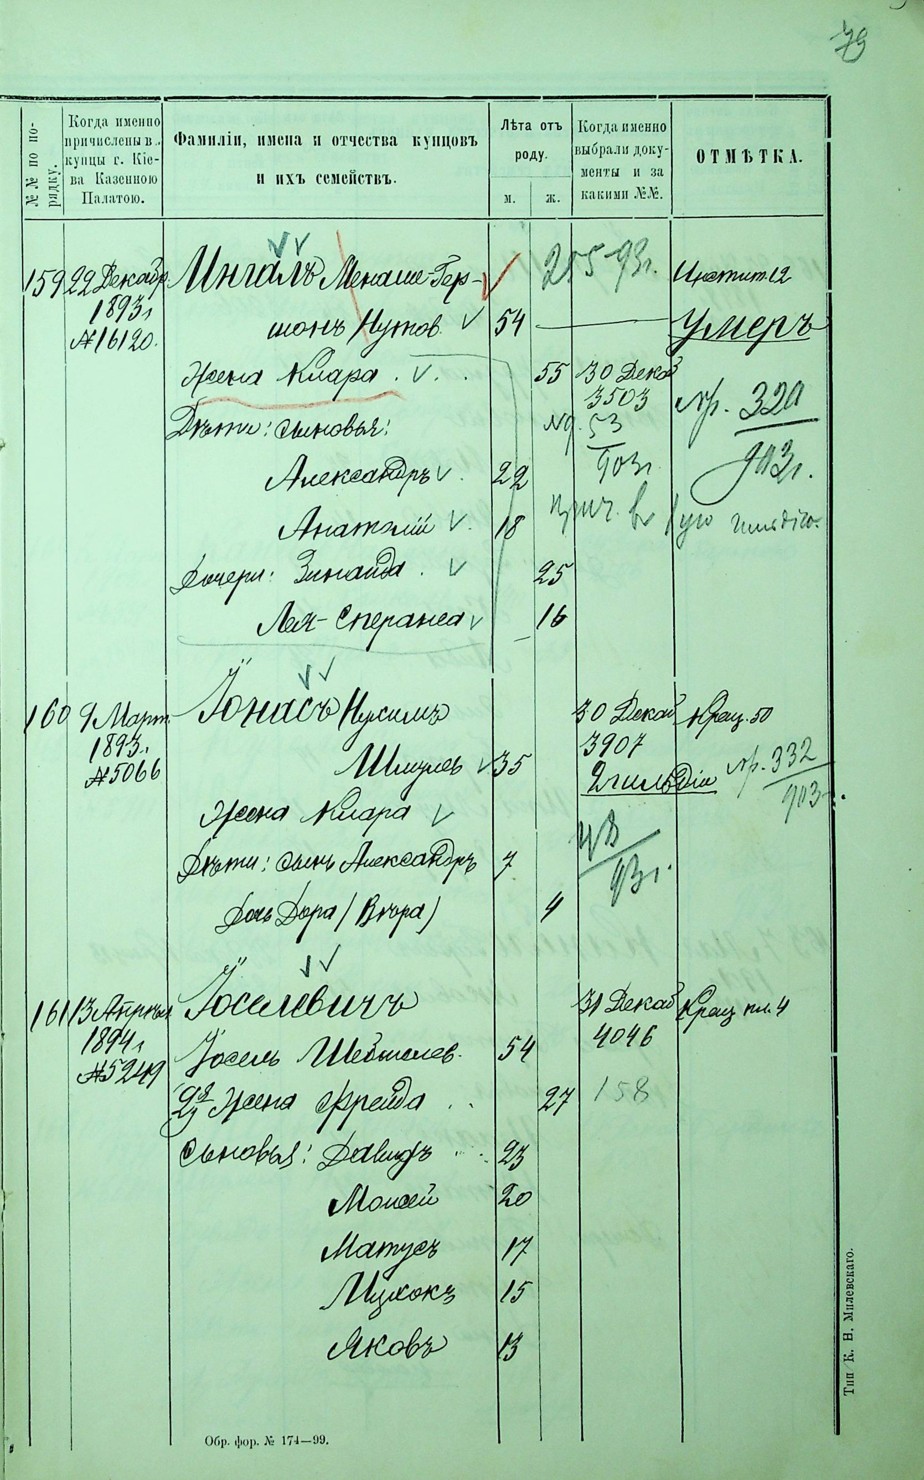 79
№№ по по-
рядку.
Когда именно
причислены в
купцы г. Кіе-
ва Казенною
Палатою.
Фамиліи, имена и отчества купцовъ
и ихъ семействъ.
Лѣта отъ
роду.
м. ж.
Когда именно
выбрали доку-
менты и за
какими №№.
ОТМѢТКА.
159 22 Декабр Ингалъ Менаше-Гер- 255-93г. Инстит 12
1893г шонъ Нутов 54 — Умеръ
№16120.
Жена Клара 55 30 Декаб
3503 пр. 320
903г.
Дѣти: сыновья: 53
903г.
Александръ 22
Анатолій 18 прич. в гильдію.
Дочери: Зинаида 25
Лея-Сперанса 16
160 9 Март Іонасъ Нухимъ 30 Декаб Крещ. 50
1893г. Шмулев 35 3907
№5066 2 гильдіи пр. 332
903
Жена Клара
93г.
Дѣти: сынъ Александръ 7
Дочь Дора (Двора) 4
161 13 Апрѣля Іоселевичъ 31 Декаб Крещ пл. 4
1894г Іосель Шевшелев. 54 4046
№5249
2я Жена Фрейда 27 158
Сыновья: Давидъ 23
Моисей 20
Матусъ 17
15
Яковъ 13
Обр. фор. № 174—99.
Тип К. Н. Милевскаго.